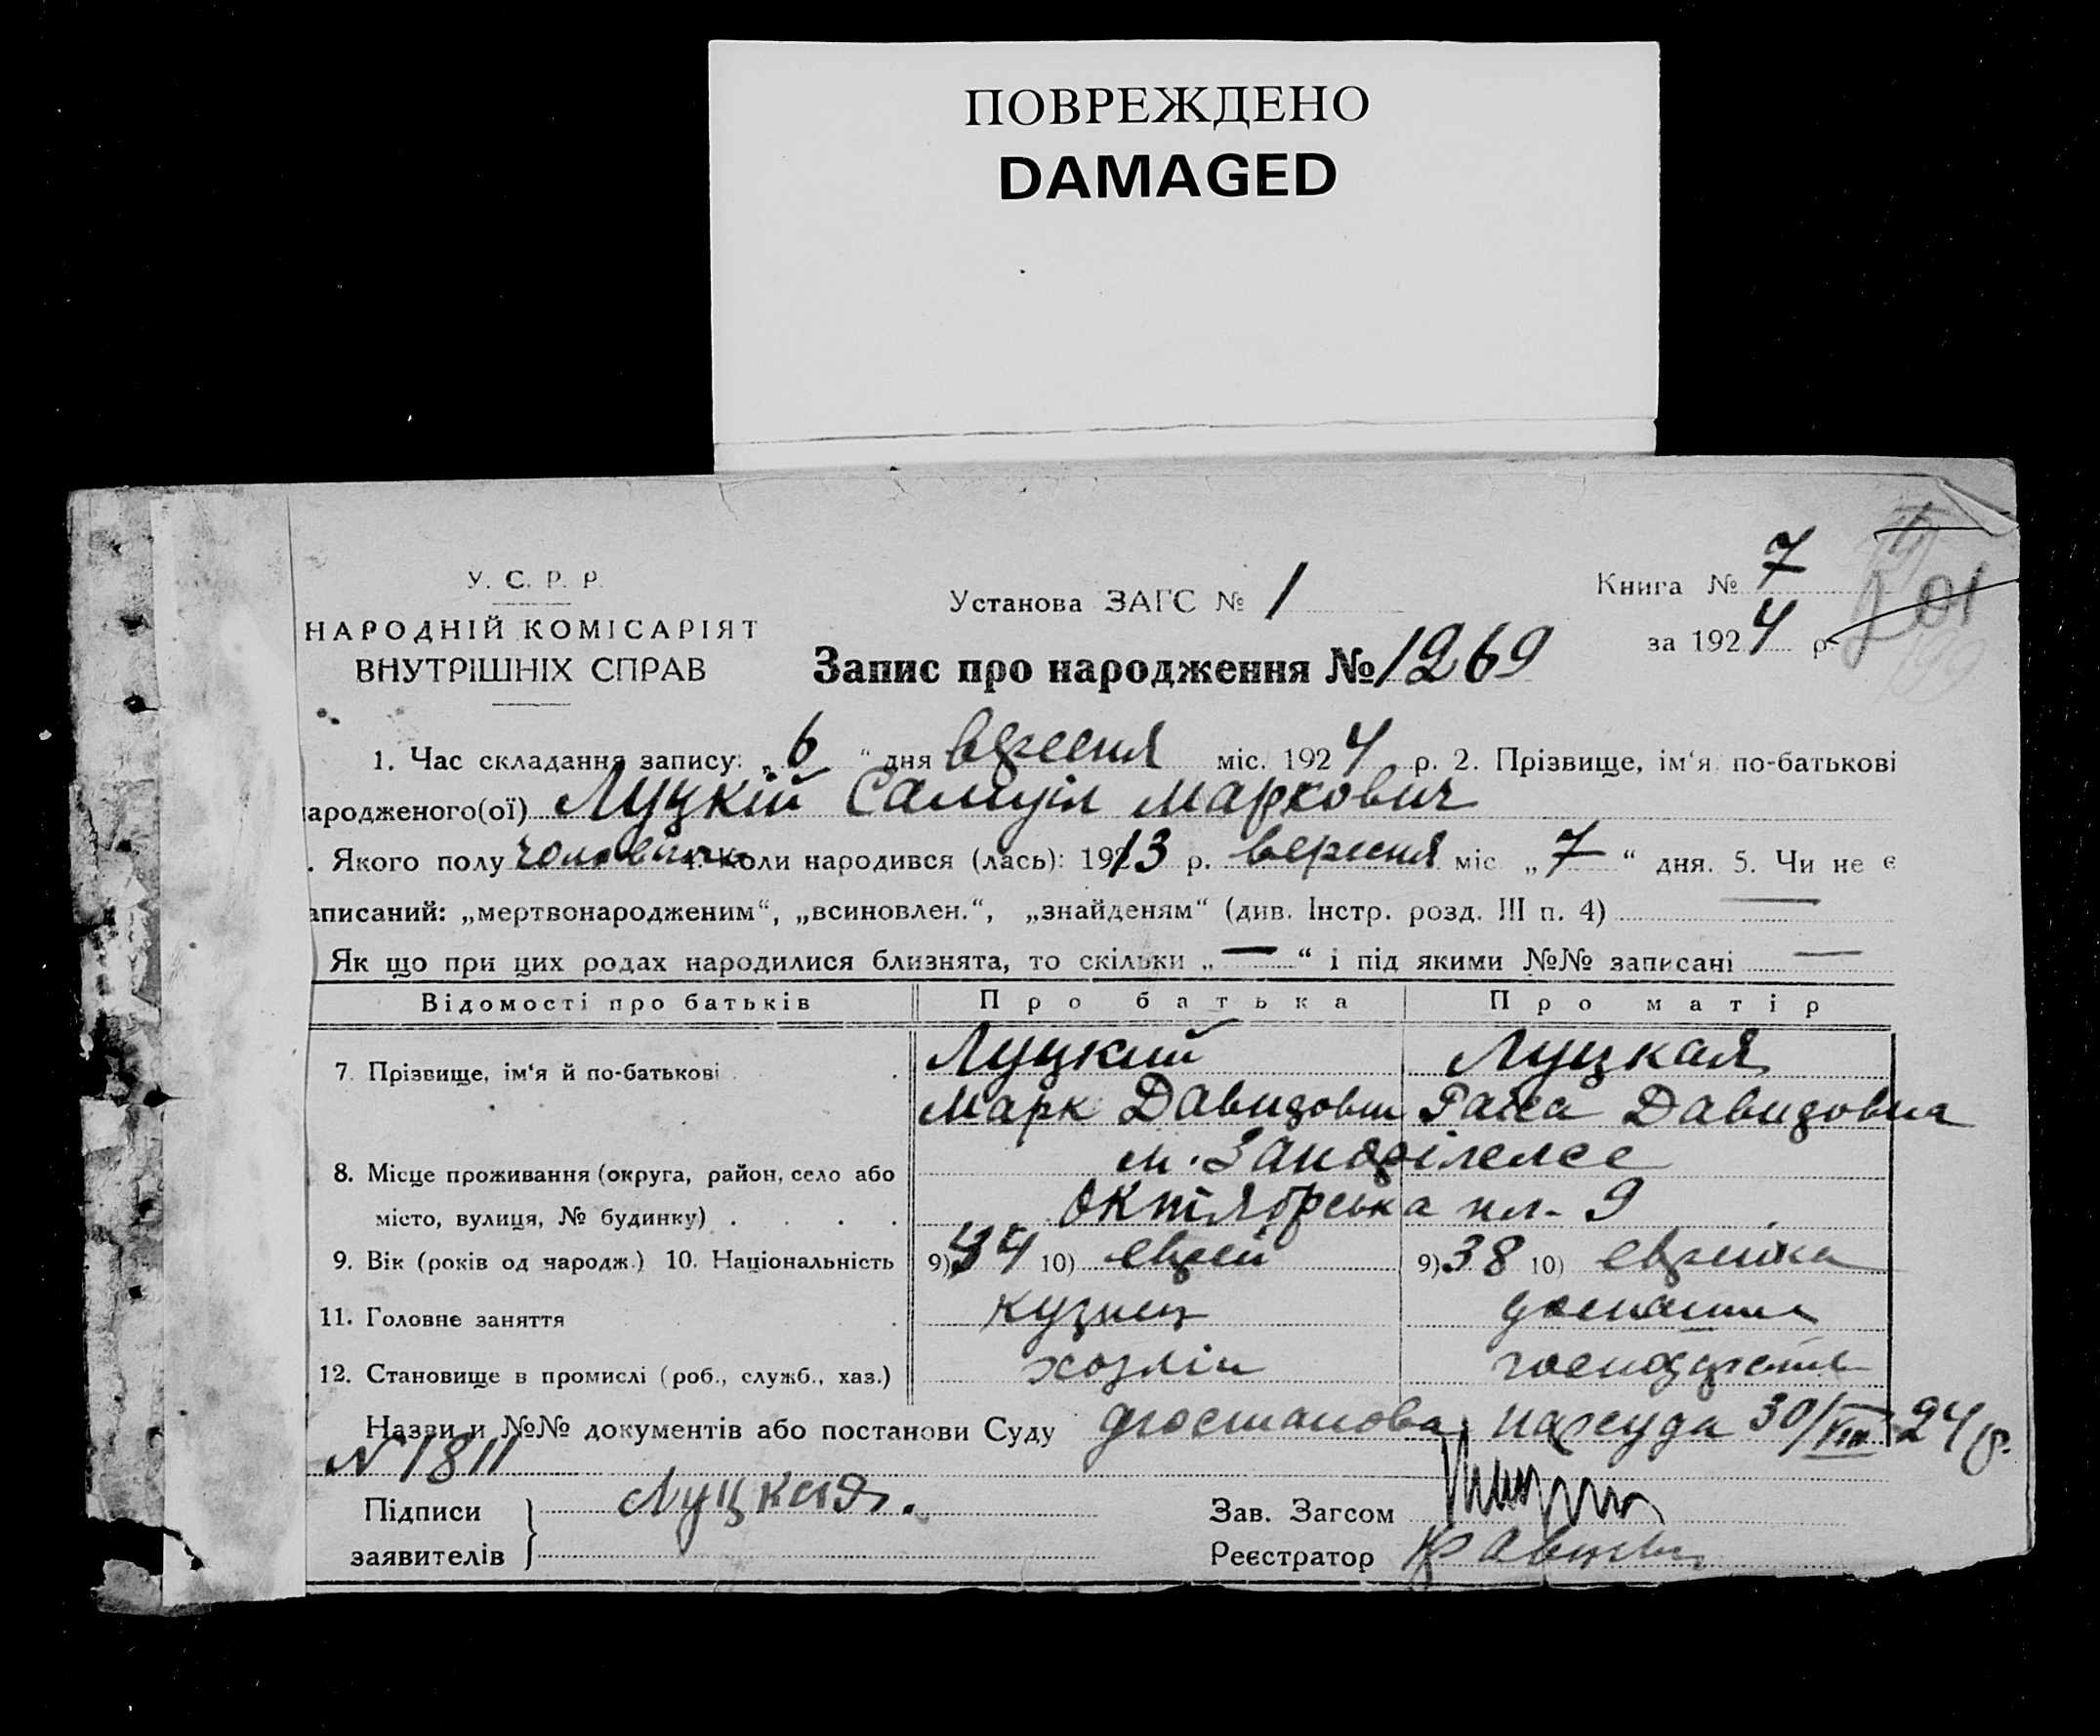 ПОВРЕЖДЕНО
DAMAGED
У. С. Р. Р.
НАРОДНІЙ КОМІСАРІЯТ
ВНУТРІШНІХ СПРАВ
Установа ЗАГС № 1
Книга № 7
за 1924 р.
201
Запис про народження № 1269
1. Час складання запису: „6“ дня вересня міс. 1924 р. 2. Прізвище, ім‘я по-батькові
ародженого(ої) Луцкій Самуіл Маркович
. Якого полу чоловіча 4. Коли народився (лась): 1913 р. вересня міс „7“ дня. 5. Чи не є
аписаний: „мертвонародженим“, „всиновлен.“, „знайденям“ (див. Інстр. розд. III п. 4) —
Як що при цих родах народилися близнята, то скільки „—“ і під якими №№ записані —
Відомості про батьків Про батька Про матір
7. Прізвище, ім‘я й по-батькові Луцкий Луцкая
Марк Давидович Раиса Давидовна
8. Місце проживання (округа, район, село або м.
місто, вулиця, № будинку) Октяборська пл. 9
9. Вік (років од народж.) 10. Національність 9) 34 10) еврей 9) 38 10) еврейка
11. Головне заняття кузнец домашне
12. Становище в промислі (роб., служб., хаз.) хозяін господарств
Назви и №№ документів або постанови Суду постанова нарсуда 30/VIII 24 р.
N 1811
Підписи Луцкая. Зав. Загсом
заявителів Реєстратор